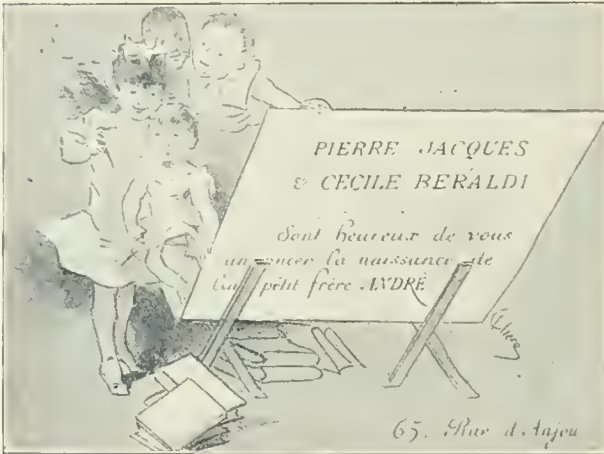 PIERRE JACQUES
& CECILE BERALDI
Sont heureux de vous
annoncer la naissance de
petit frère ANDRÉ
65. Rue d'Anjou